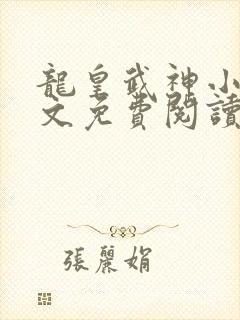 龍皇武神小
文免費閱讀
張麗娟